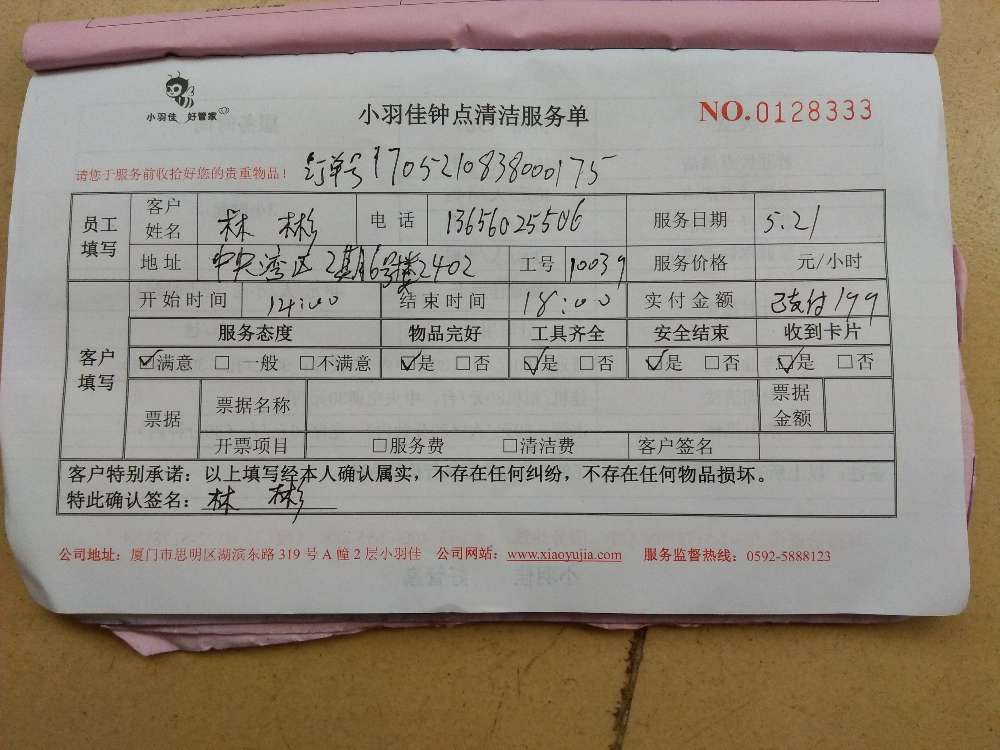 小羽佳 好管家
小羽佳钟点清洁服务单
NO.0128333
请您于服务前收拾好您的贵重物品！ 订单号 1705210838000175
员工填写 客户姓名 林 彬 电话 13656025506 服务日期 5.21
地址 中央湾区2期6号楼2402 工号 10039 服务价格 元/小时
客户填写 开始时间 14:00 结束时间 18:00 实付金额 已支付199
服务态度 物品完好 工具齐全 安全结束 收到卡片
☑满意 □一般 □不满意 ☑是 □否 ☑是 □否 ☑是 □否 ☑是 □否
票据 票据名称 票据金额
开票项目 □服务费 □清洁费 客户签名
客户特别承诺：以上填写经本人确认属实，不存在任何纠纷，不存在任何物品损坏。
特此确认签名：林 彬
公司地址：厦门市思明区湖滨东路 319 号 A 幢 2 层小羽佳 公司网站：www.xiaoyujia.com 服务监督热线：0592-5888123